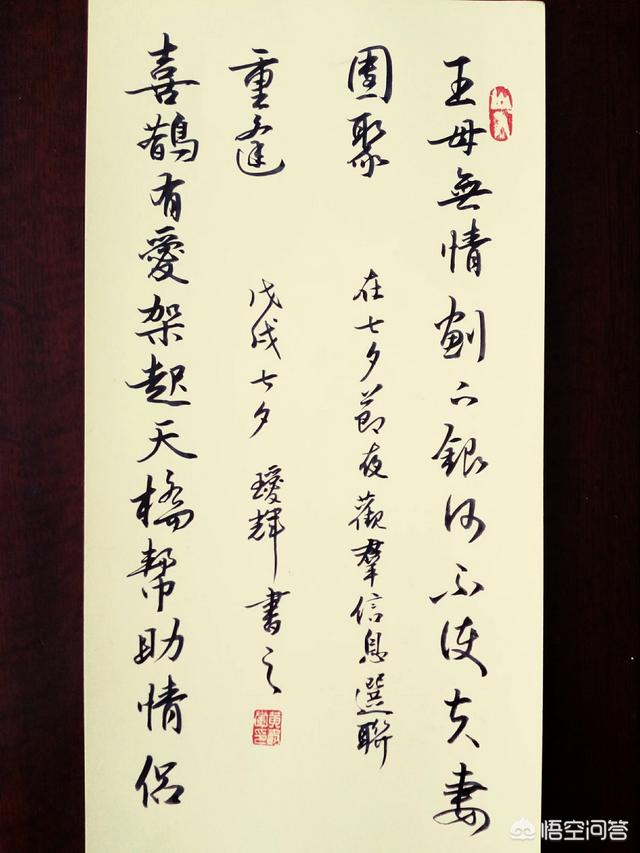 王母無情劃下銀河不使夫妻
團聚
喜鵲有愛架起天橋幫助情侶
重逢
在七夕節夜觀羣信息選聯
戊戌七夕 璦輝書之
悟空问答